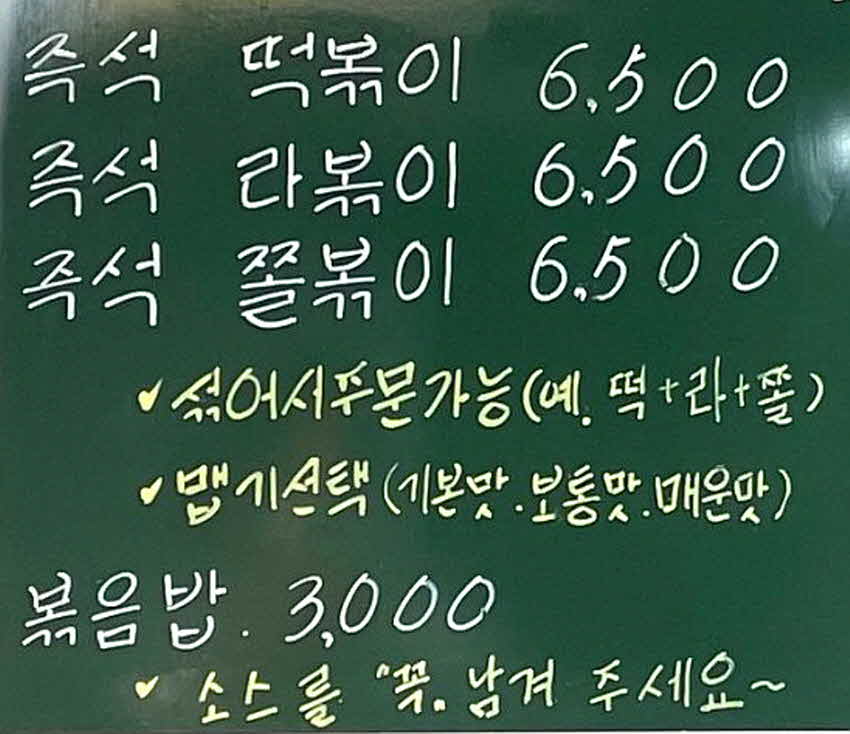 즉석 떡볶이 6,500
즉석 라볶이 6,500
즉석 쫄볶이 6,500
✓ 섞어서주문가능(예. 떡+라+쫄)
✓ 맵기선택(기본맛.보통맛.매운맛)
볶음밥. 3,000
✓ 소스를 "꼭. 남겨 주세요~